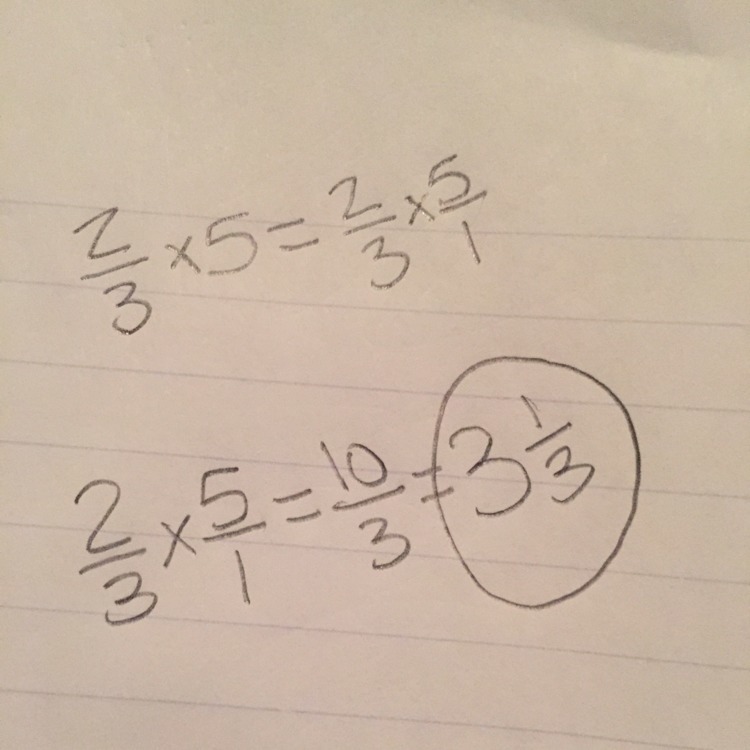 2/3 × 5 = 2/3 × 5/1
2/3 × 5/1 = 10/3 = 3 1/3